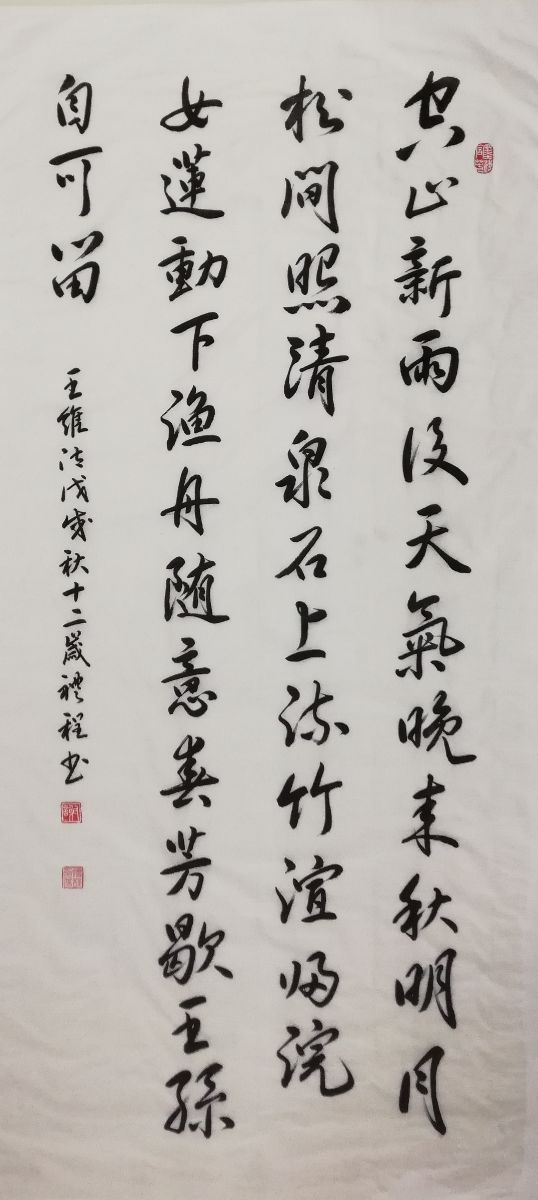 空山新雨後天氣晚来秋明月
松間照清泉石上流竹渲歸浣
女蓮動下渔舟随意春芳歇王孫
自可留
王維詩戊戌秋十二歲禮程书